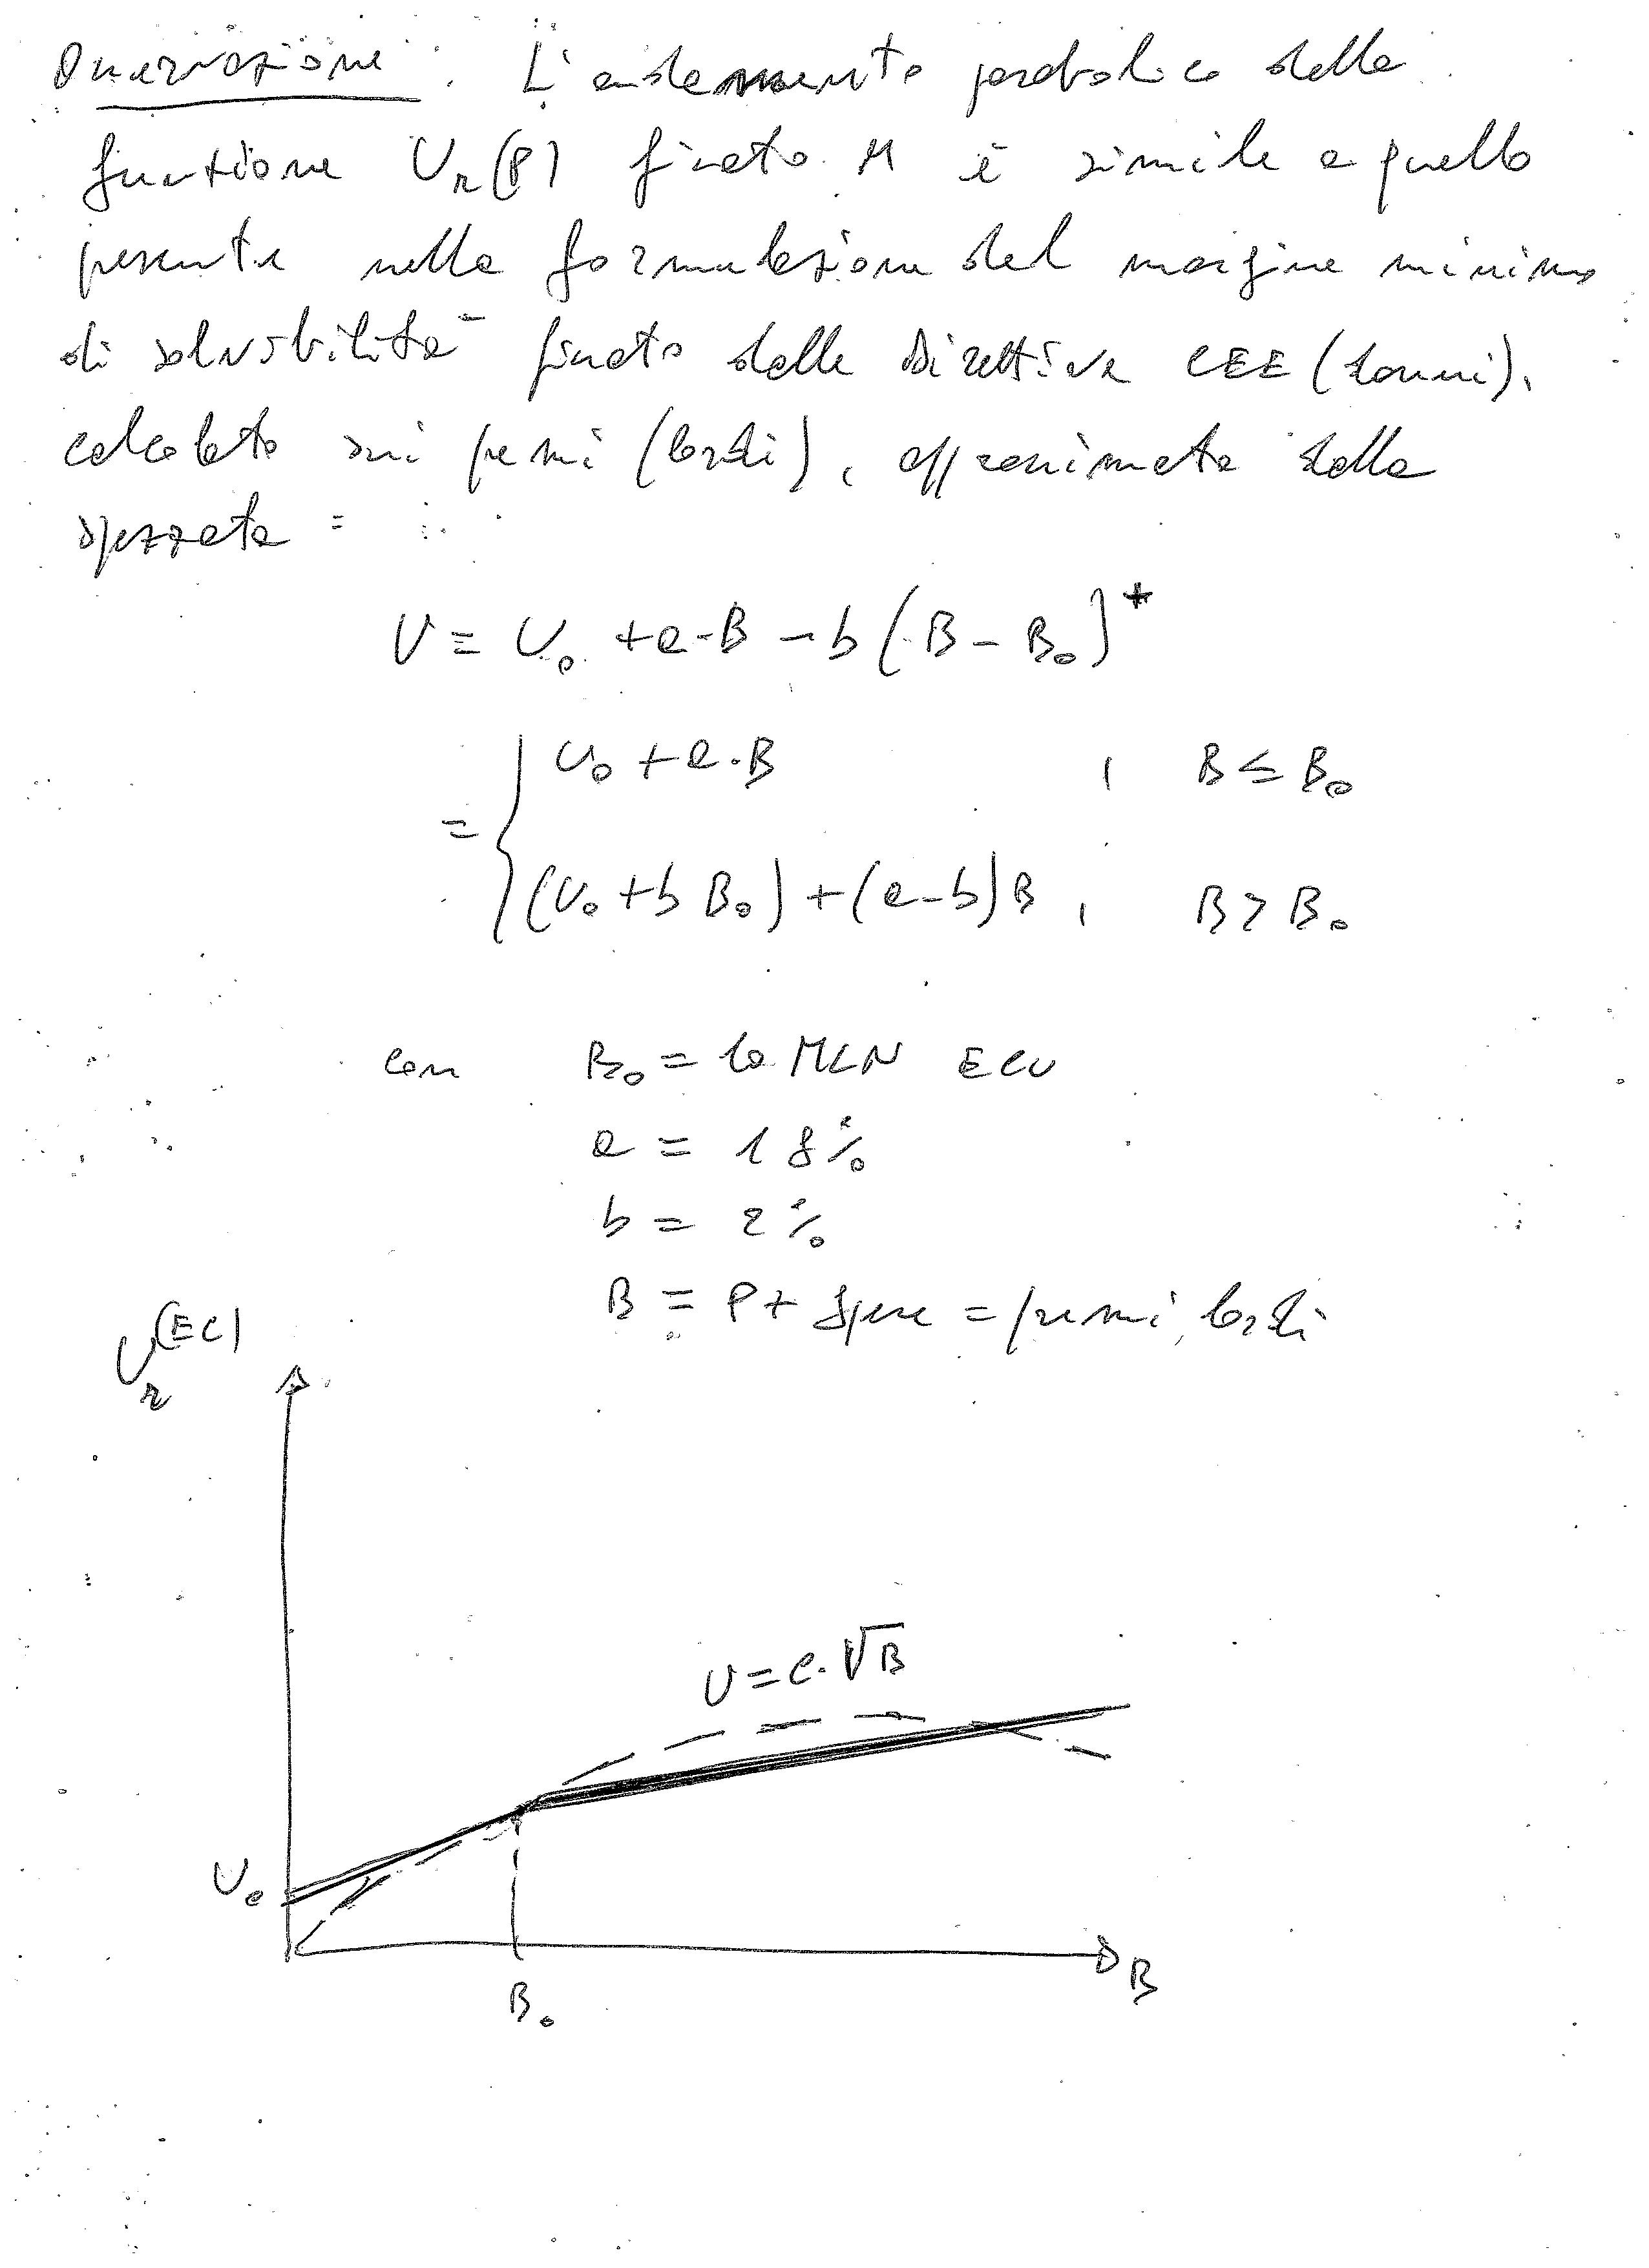 Osservazione. L'andamento parabolico della
funzione Ur(P) fissato M è simile a quello
presente nella formulazione del margine minimo
di solvibilità fissato dalla Direttiva CEE (danni),
calcolato sui premi (lordi), approssimata dalla
spezzata =
U = U₀ + a·B - b(B - B₀)⁺
= { U₀ + a·B , B ≤ B₀
(U₀ + b B₀) + (a-b)B , B > B₀
con B₀ = 10 MLN ECU
a = 18%
b = 2%
B = P + spese = premi lordi
Ur^(EC)
U = c·√B
U₀
B₀
B